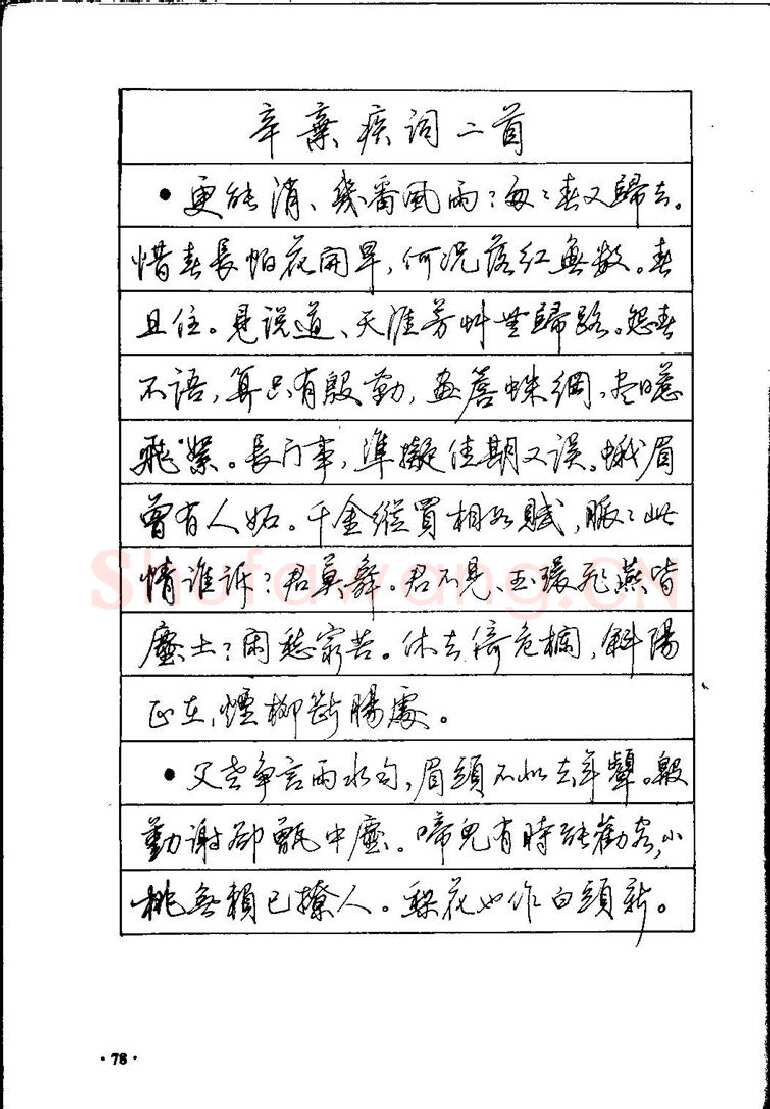 辛棄疾词二首
•更能消、幾番風雨？匆匆春又歸去。
惜春長怕花開早，何況落紅無數。春
且住。見说道、天涯芳艸無歸路。怨春
不语，算只有殷勤，画簷蛛網，尽日惹
飛絮。長门事，準擬佳期又误。蛾眉
曾有人妬。千金縱買相如赋，脈脈此
情谁诉？君莫舞。君不見、玉環飛燕皆
塵土？闲愁最苦。休去倚危欄，斜陽
正在，煙柳断腸處。
•父老争言雨水匀，眉頭不似去年颦。殷
勤谢卻甑中塵。啼鳥有時能勸客，小
桃無賴已撩人。梨花也作白頭新。
Shufawang.CN
•78•